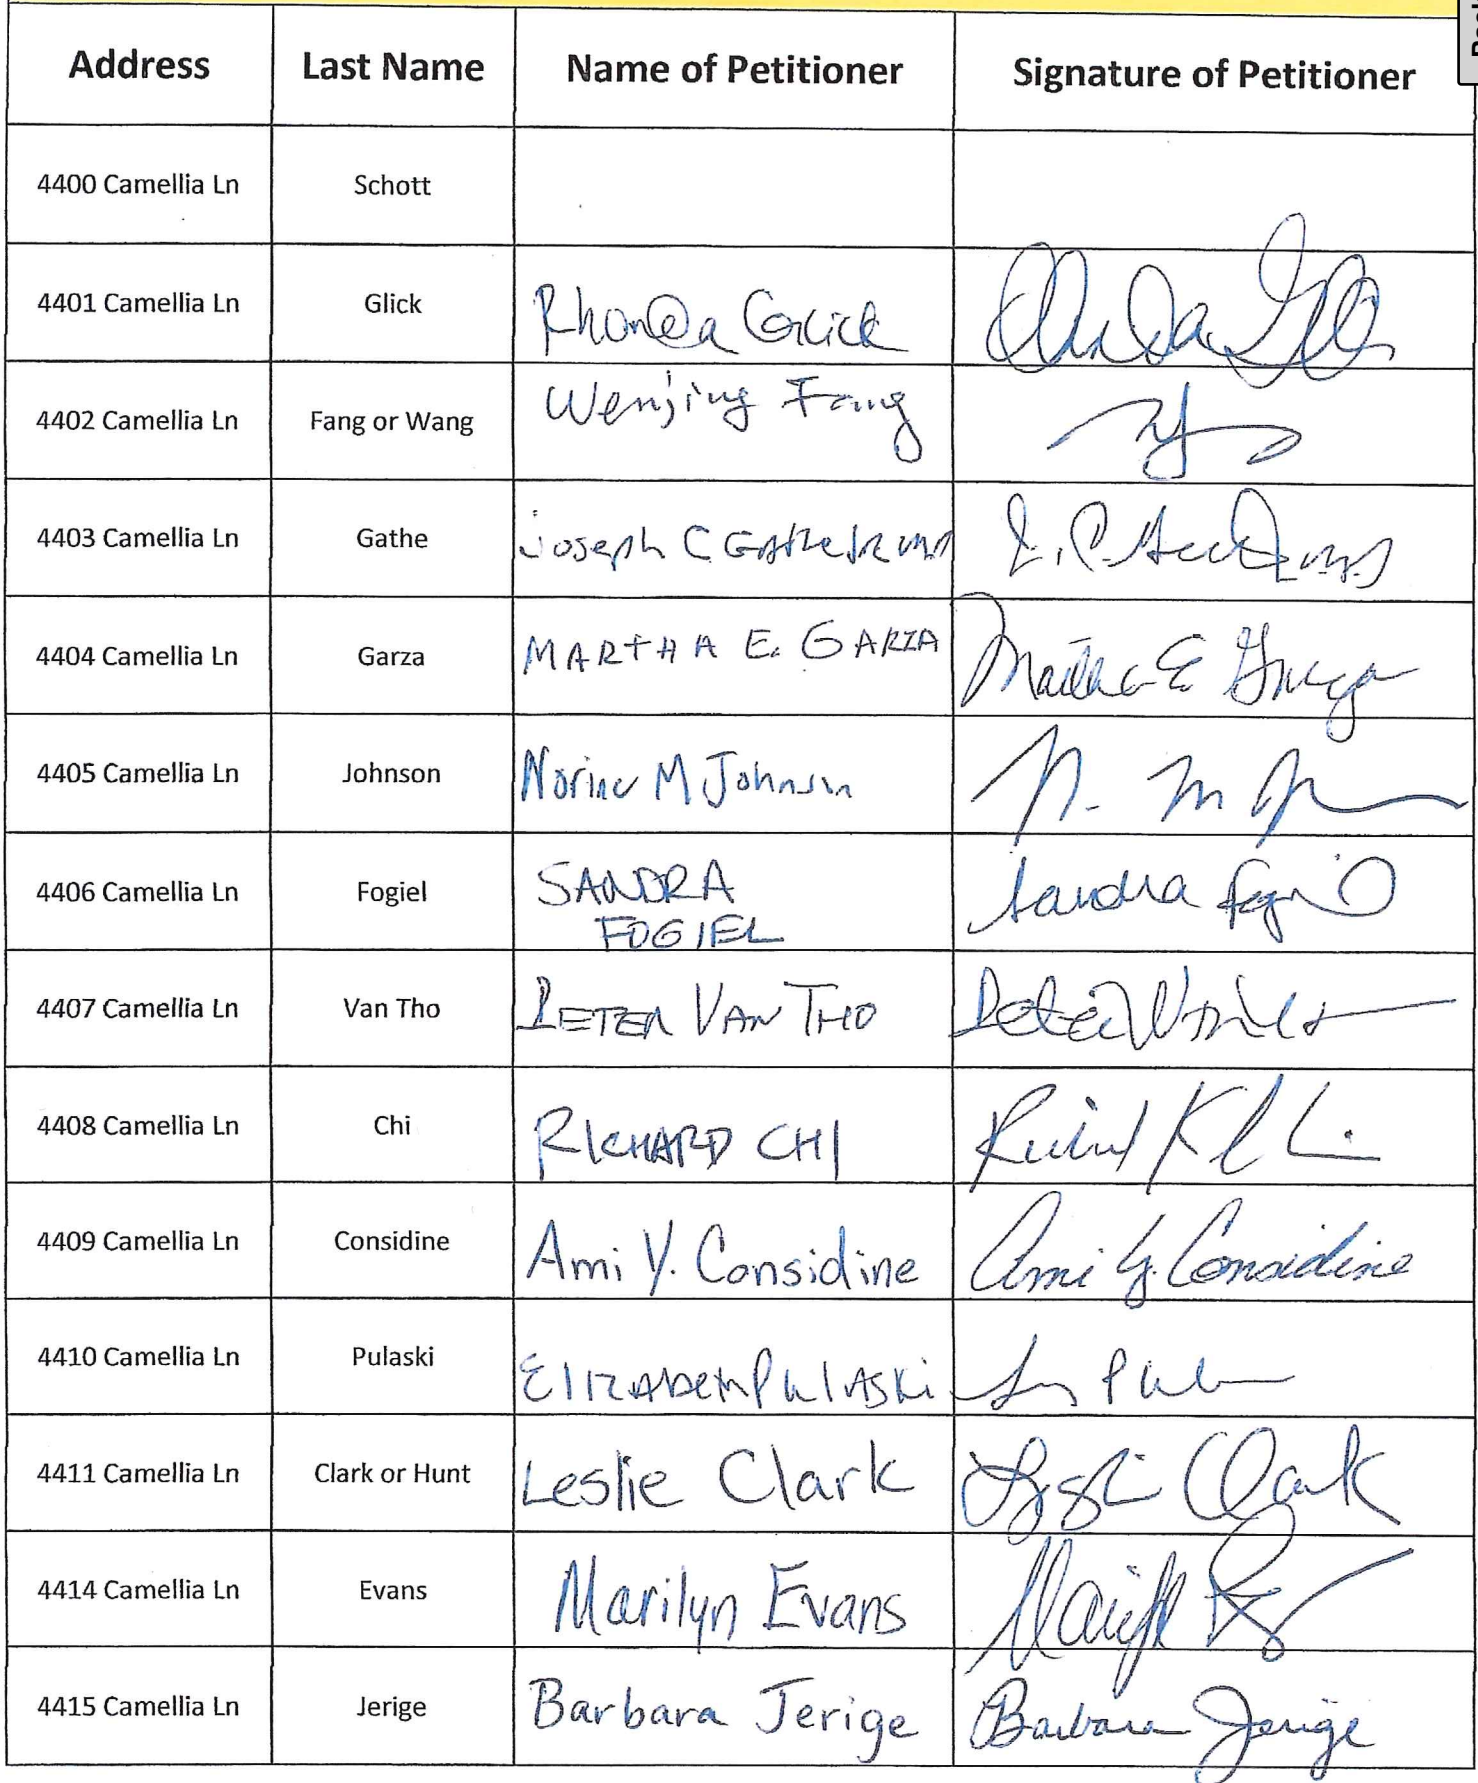 Address Last Name Name of Petitioner Signature of Petitioner
4400 Camellia Ln Schott
4401 Camellia Ln Glick Rhonda Glick
4402 Camellia Ln Fang or Wang Wenjing Fang
4403 Camellia Ln Gathe Joseph C Gathe Jr MD
4404 Camellia Ln Garza MARTHA E. GARZA Martha E Garza
4405 Camellia Ln Johnson Norine M Johnson
4406 Camellia Ln Fogiel SANDRA Sandra Fogiel
FOGIEL
4407 Camellia Ln Van Tho PETER VAN THO
4408 Camellia Ln Chi RICHARD CHI
4409 Camellia Ln Considine Ami Y. Considine Ami Y. Considine
4410 Camellia Ln Pulaski Elizabeth Pulaski
4411 Camellia Ln Clark or Hunt Leslie Clark Leslie Clark
4414 Camellia Ln Evans Marilyn Evans
4415 Camellia Ln Jerige Barbara Jerige Barbara Jerige